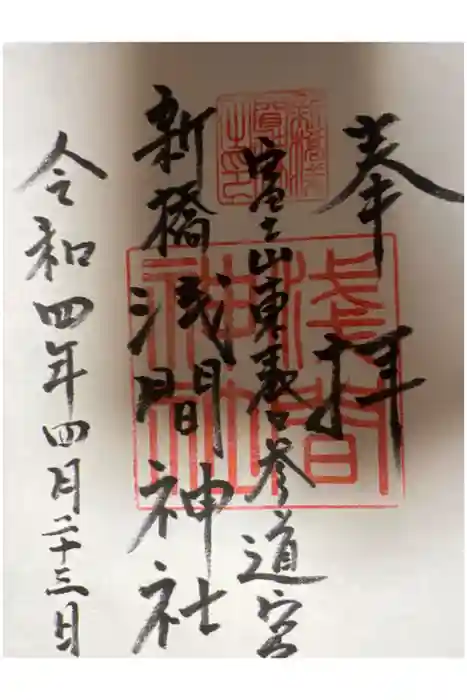 奉拝
富士山東表口参道宮
新橋浅間神社
令和四年四月二十三日
浅間神社